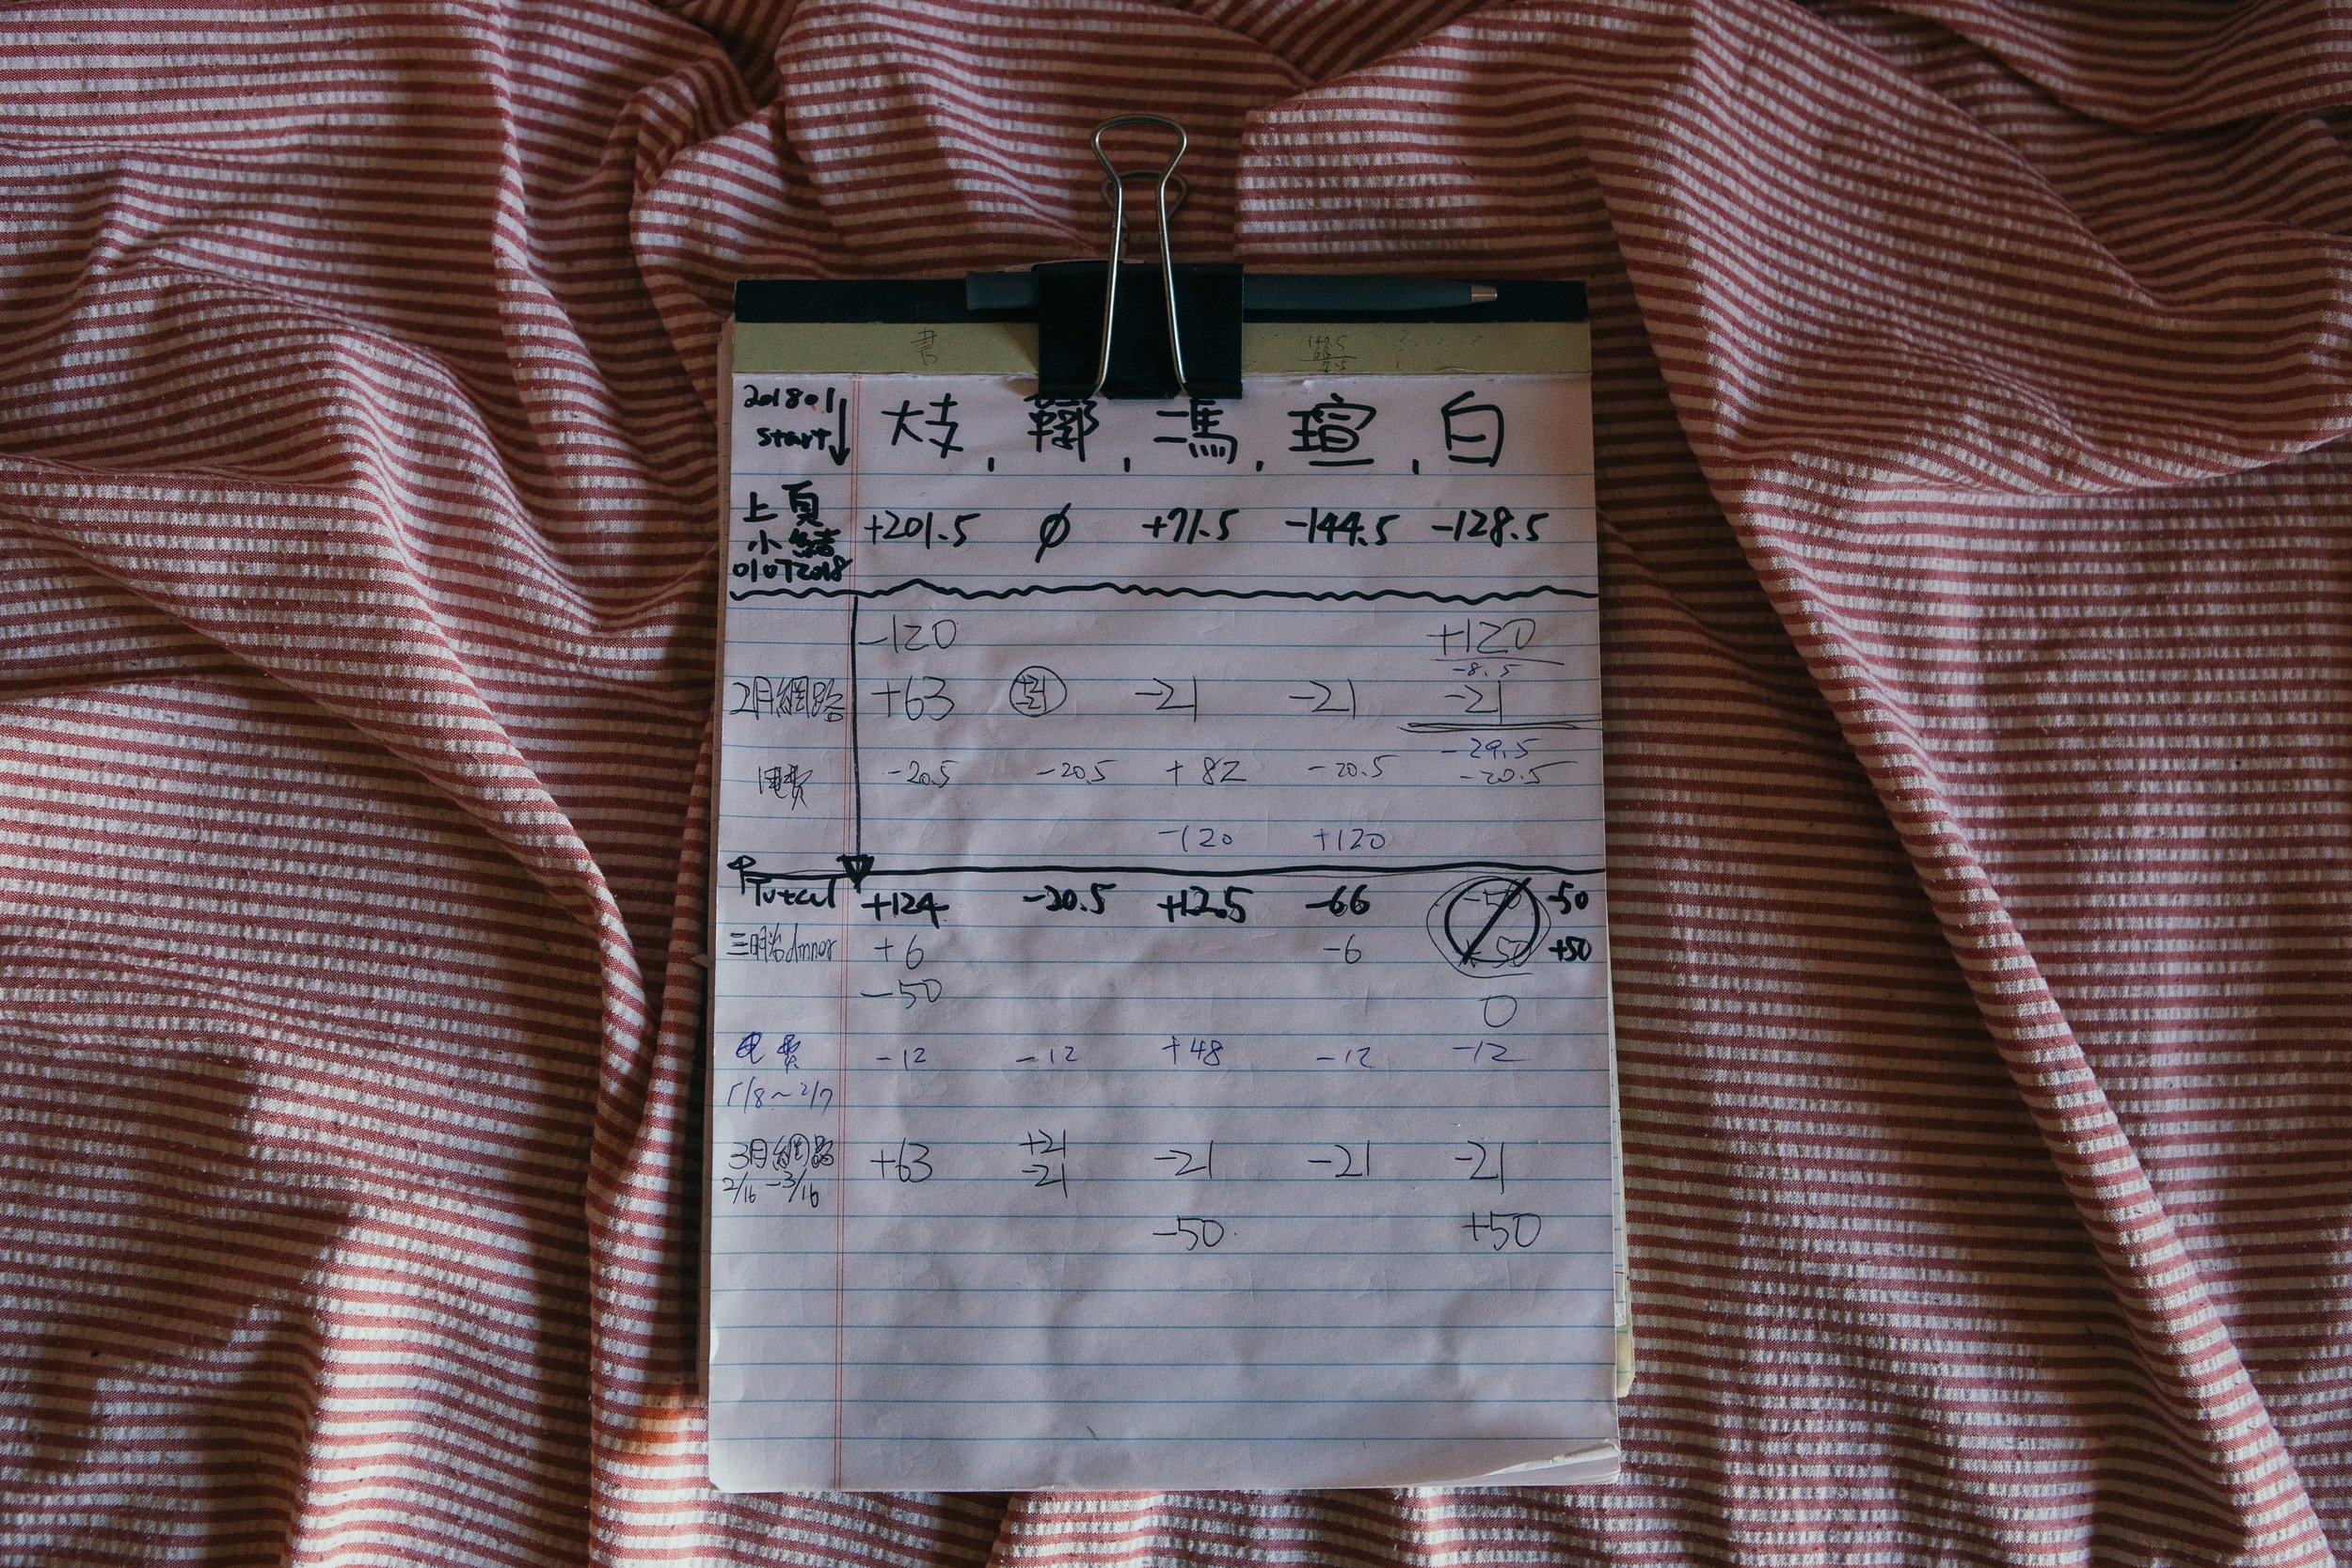 書
201801 start
大支, 鄭, 馮, 瑄, 白
上頁 +201.5 ∅ +71.5 -144.5 -128.5
小結
01072018
-120 +120
-8.5
2月網路 +63 -21 -21 -21
-29.5
電費 -20.5 -20.5 +82 -20.5 -20.5
-120 +120
Total +124 -20.5 +12.5 -66 -50
三明治dinner +6 -6 +50
-50 0
电费 -12 -12 +48 -12 -12
1/8~2/7
3月網路 +63 +21 -21 -21 -21
2/16-3/16 -21
-50 +50